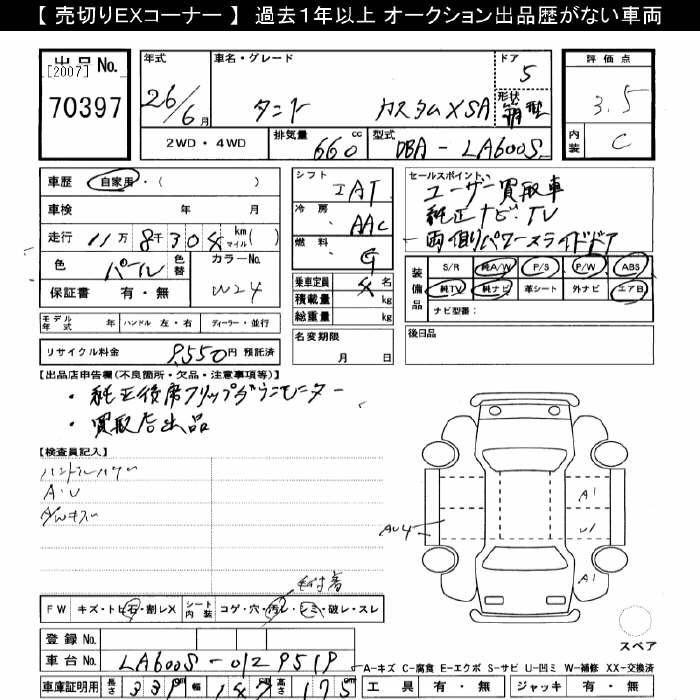 【 売切りEXコーナー 】 過去1年以上 オークション出品歴がない車両
出品 No.
[2007]
70397
年式
26/6月
車名・グレード
タント カスタムXSA
ドア
5
形状
箱型
評価点
3.5
内装
C
2WD・4WD
排気量
660 cc
型式
DBA-LA600S
車歴 自家用・( )
車検 年 月
走行 11万8千304 km マイル( )
色 パール 色替 カラーNo. W24
保証書 有・無
シフト
IAT
冷房
AAC
燃料
G
乗車定員 4名
積載量 kg
総重量 kg
セールスポイント
ユーザー買取車
純正ナビ・TV
両側パワースライドドア
装備品
S/R 純A/W P/S P/W ABS
純TV 純ナビ 革シート 外ナビ エアB
ナビ型番:
モデル年式 年 ハンドル 左・右 ディーラー・並行
名変期限
月 日
後日品
リサイクル料金 9,550円 預託済
【出品店申告欄(不良箇所・欠品・注意事項等)】
・純正後席フリップダウンモニター
・買取店出品
【検査員記入】
A・U
AU4
A1
U1
A1
FW キズ・トビ石・割レX シート内装 コゲ・穴・汚レ・シミ・破レ・スレ
スペア
登録 No.
車台 No. LA600S-0129519
A-キズ C-腐食 E-エクボ S-サビ U-凹ミ W-補修 XX-交換済
車庫証明用 長さ 339 cm 幅 147 cm 高さ 175 cm
工具 有・無 ジャッキ 有・無